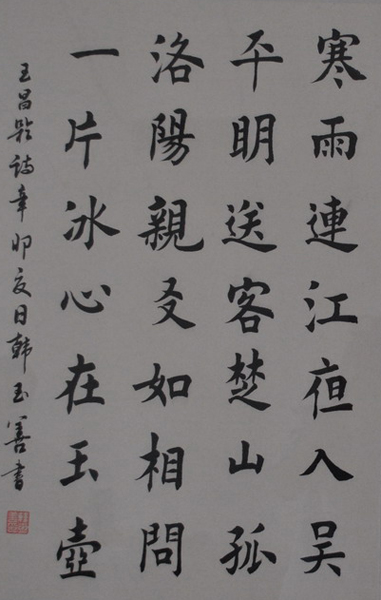 寒雨連江夜入吳
平明送客楚山孤
洛陽親友如相問
一片冰心在玉壺
王昌齡詩辛卯夏日韓玉善書